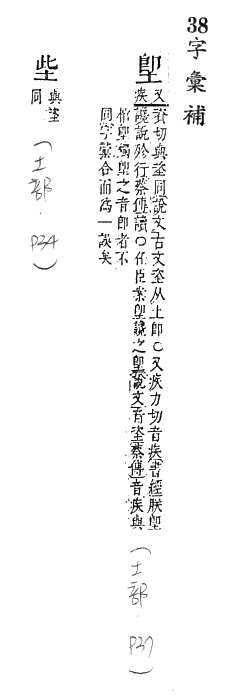 38字彙補
堲
又疾資切與垐同說文古文垐从土卽○又疾力切音疾書經朕堲
讒說殄行蔡傳讀○任臣案堲讒之堲說文音垐蔡傳音疾與
櫛堲燭堲之音卽者不
同字彙合而爲一誤矣
(土部.P37)
與垐
同
(土部.P34)